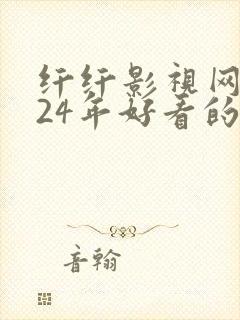 纤纤影视网
24年好看的
音翰